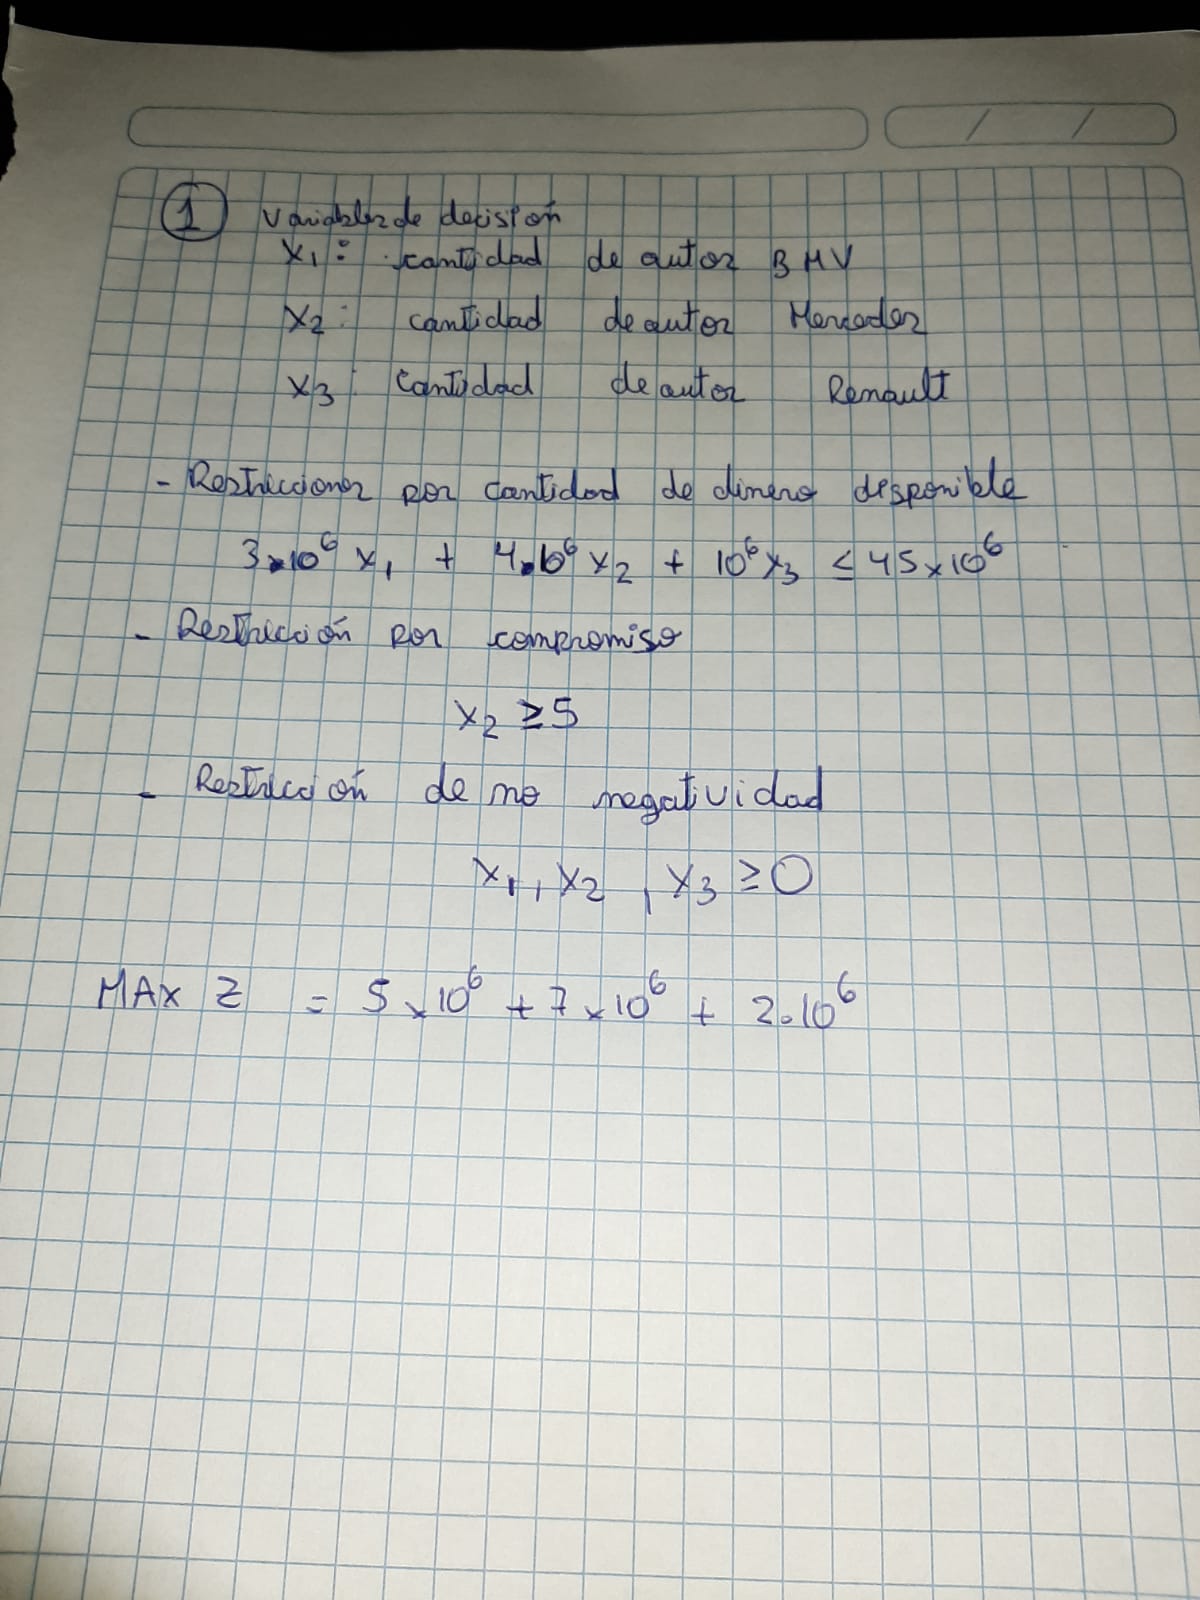 1 Variables de decisión
X₁: cantidad de autos BMV
X₂: cantidad de autos Mercedes
X₃: cantidad de autos Renault
- Restricciones por cantidad de dinero disponible
3×10⁶ X₁ + 4×10⁶ X₂ + 10⁶ X₃ ≤ 45×10⁶
- Restricción por compromiso
X₂ ≥ 5
- Restricción de no negatividad
X₁, X₂, X₃ ≥ 0
MAX Z = 5×10⁶ + 7×10⁶ + 2·10⁶